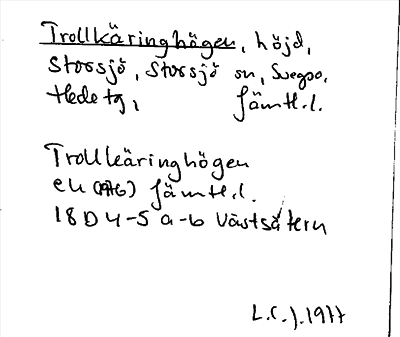 Trollkäringhögen, höjd,
Storsjö, Storsjö sn, Svegso,
Hede tg, Jämtl.l.
Trollkäringhögen
ek (1976) Jämtl.l.
18D 4-5 a-b Västsätern
L.C.J. 1977